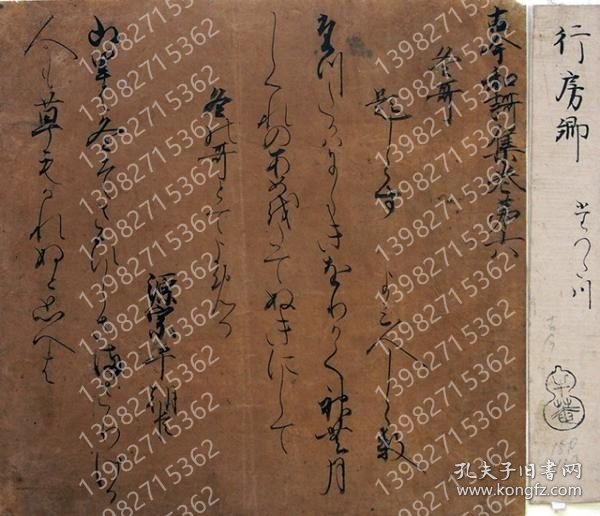 行房卿 たつた川
古今
古今和謌集巻第六
冬哥
題しらす よみ人しら数
にしきをりかく神無月
しくれのあめをたてぬきにして
冬の哥とてよめる
源宗于朝臣
山里は冬そさひしさまさりける
人めも草もかれぬとおもへは
13982715362
孔夫子旧书网
www.kongfz.com